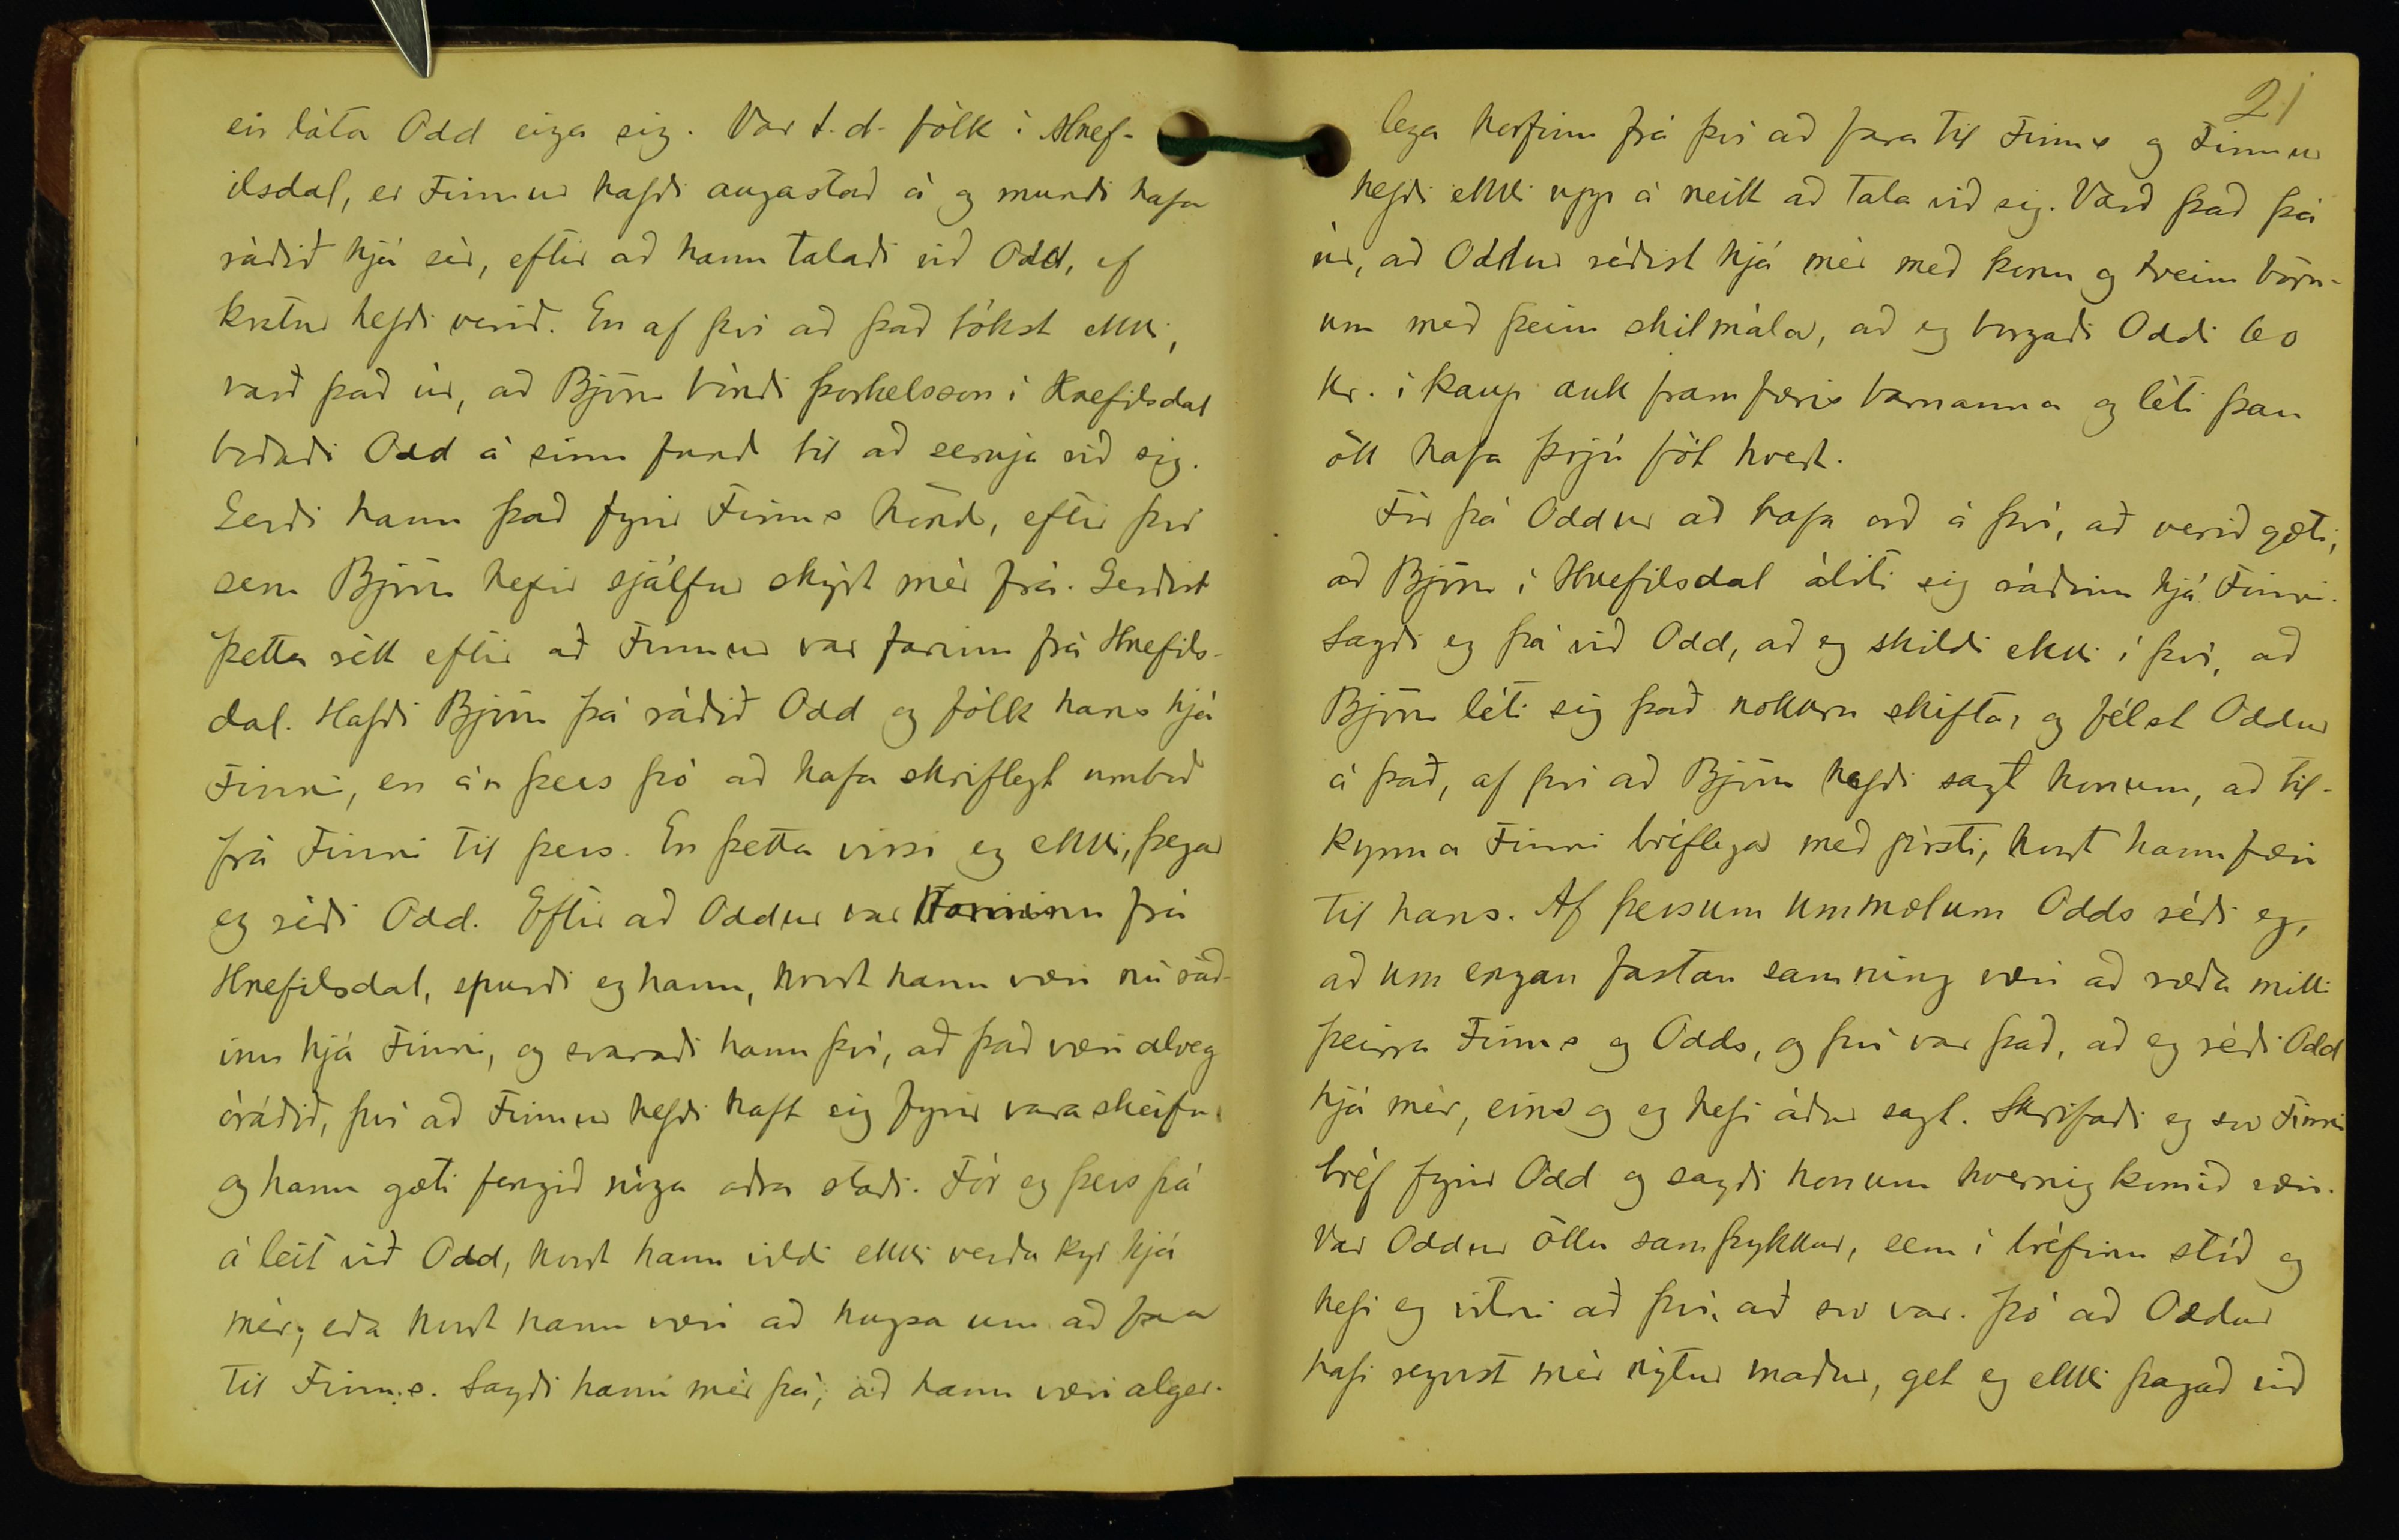 en láta Odd eiga sig. Var t.d. fólk í Hnef-
ilsdal, er Finnur hafði augastað á og mundi hafa
ráðið hjá sér, eftir að hann talaði við Odd, ef
kostur hefði verið. En af því að það tókst ekki,
varð það úr, að Björn bóndi Þorkelsson í Hnefilsdal
boðaði Odd á sinn fund til að semja við sig.
Gerði hann það fyrir Finns hönd, eftir því
sem Björn hefir sjálfur skýrt mér frá. Gerðist
þetta rétt eftir að Finnur var farinn frá Hnefils-
dal. Hafði Björn þá ráðið Odd og fólk hans hjá
Finni, en án þess þó að hafa skriflegt umboð
frá Finni til þess. En þetta vissi eg ekki, þegar
eg réði Odd. Eftir að Oddur var kominn frá
Hnefilsdal, spurði eg hann, hvort hann væri nú ráð-
inn hjá Finni, og svaraði hann því, að það væri alveg
óráðið, því að Finnur hefði haft sig fyrir varaskeifu,
og hann gæti fengið nóga aðra staði. Fór eg þess þá
á leit við Odd, hvort hann vildi ekki verða kyr hjá
mér, eða hvort hann væri að hugsa um að fara
til Finns. Sagði hann mér þá, að hann væri alger-
21
lega horfinn frá því að fara til Finns og Finnur
hefði ekki upp á neitt að tala við sig. Varð það þá
úr, að Oddur réðist hjá mér með konu og tveim börn-
um með þeim skilmála, að eg borgaði Oddi 60
kr. í kaup auk framfæris barnanna og léti þau
öll hafa þrjú föt hvert.
Fór þá Oddur að hafa orð á því, að verið gæti,
að Björn í Hnefilsdal áliti sig ráðinn hjá Finni.
Sagði eg þá við Odd, að eg skildi ekki í því, að
Björn léti sig það nokkru skifta, og félst Oddur
á það, af því að Björn hefði sagt honum, að til-
kynna Finni bréflega með pósti, hvort hann færi
til hans. Af þessum ummælum Odds réði eg,
að um engan fastan samning væri að ræða milli
þeirra Finns og Odds, og því var það, að eg réði Odd
hjá mér, eins og eg hefi áður sagt. Skrifaði eg svo Finni
bréf fyrir Odd og sagði honum hvernig komið væri.
Var Oddur öllu samþykkur, sem í bréfinu stóð og
hefi eg vitni að því, að svo var. Þó að Oddur
hafi reynst mér nýtur maður, get eg ekki þagað við